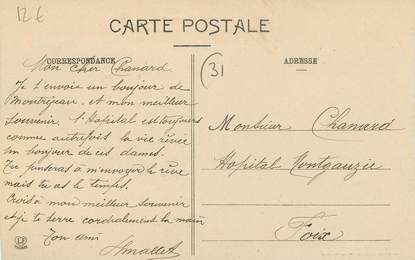 12 €
CARTE POSTALE
CORRESPONDANCE
ADRESSE
(31
Mon cher Chanard
Je t'envoie un bonjour de
Montréjeau et mon meilleur
souvenir. l'Hopital est toujours
comme autrefois la vie rêvée
un bonjour de ces dames.
Tu penseras à m'envoyer le rêve
mais tu as le temps.
Crois à mon meilleur souvenir
et je te serre cordialement la main
Ton ami
Amallet
Monsieur Chanard
Hopital Montgauzie
Foix